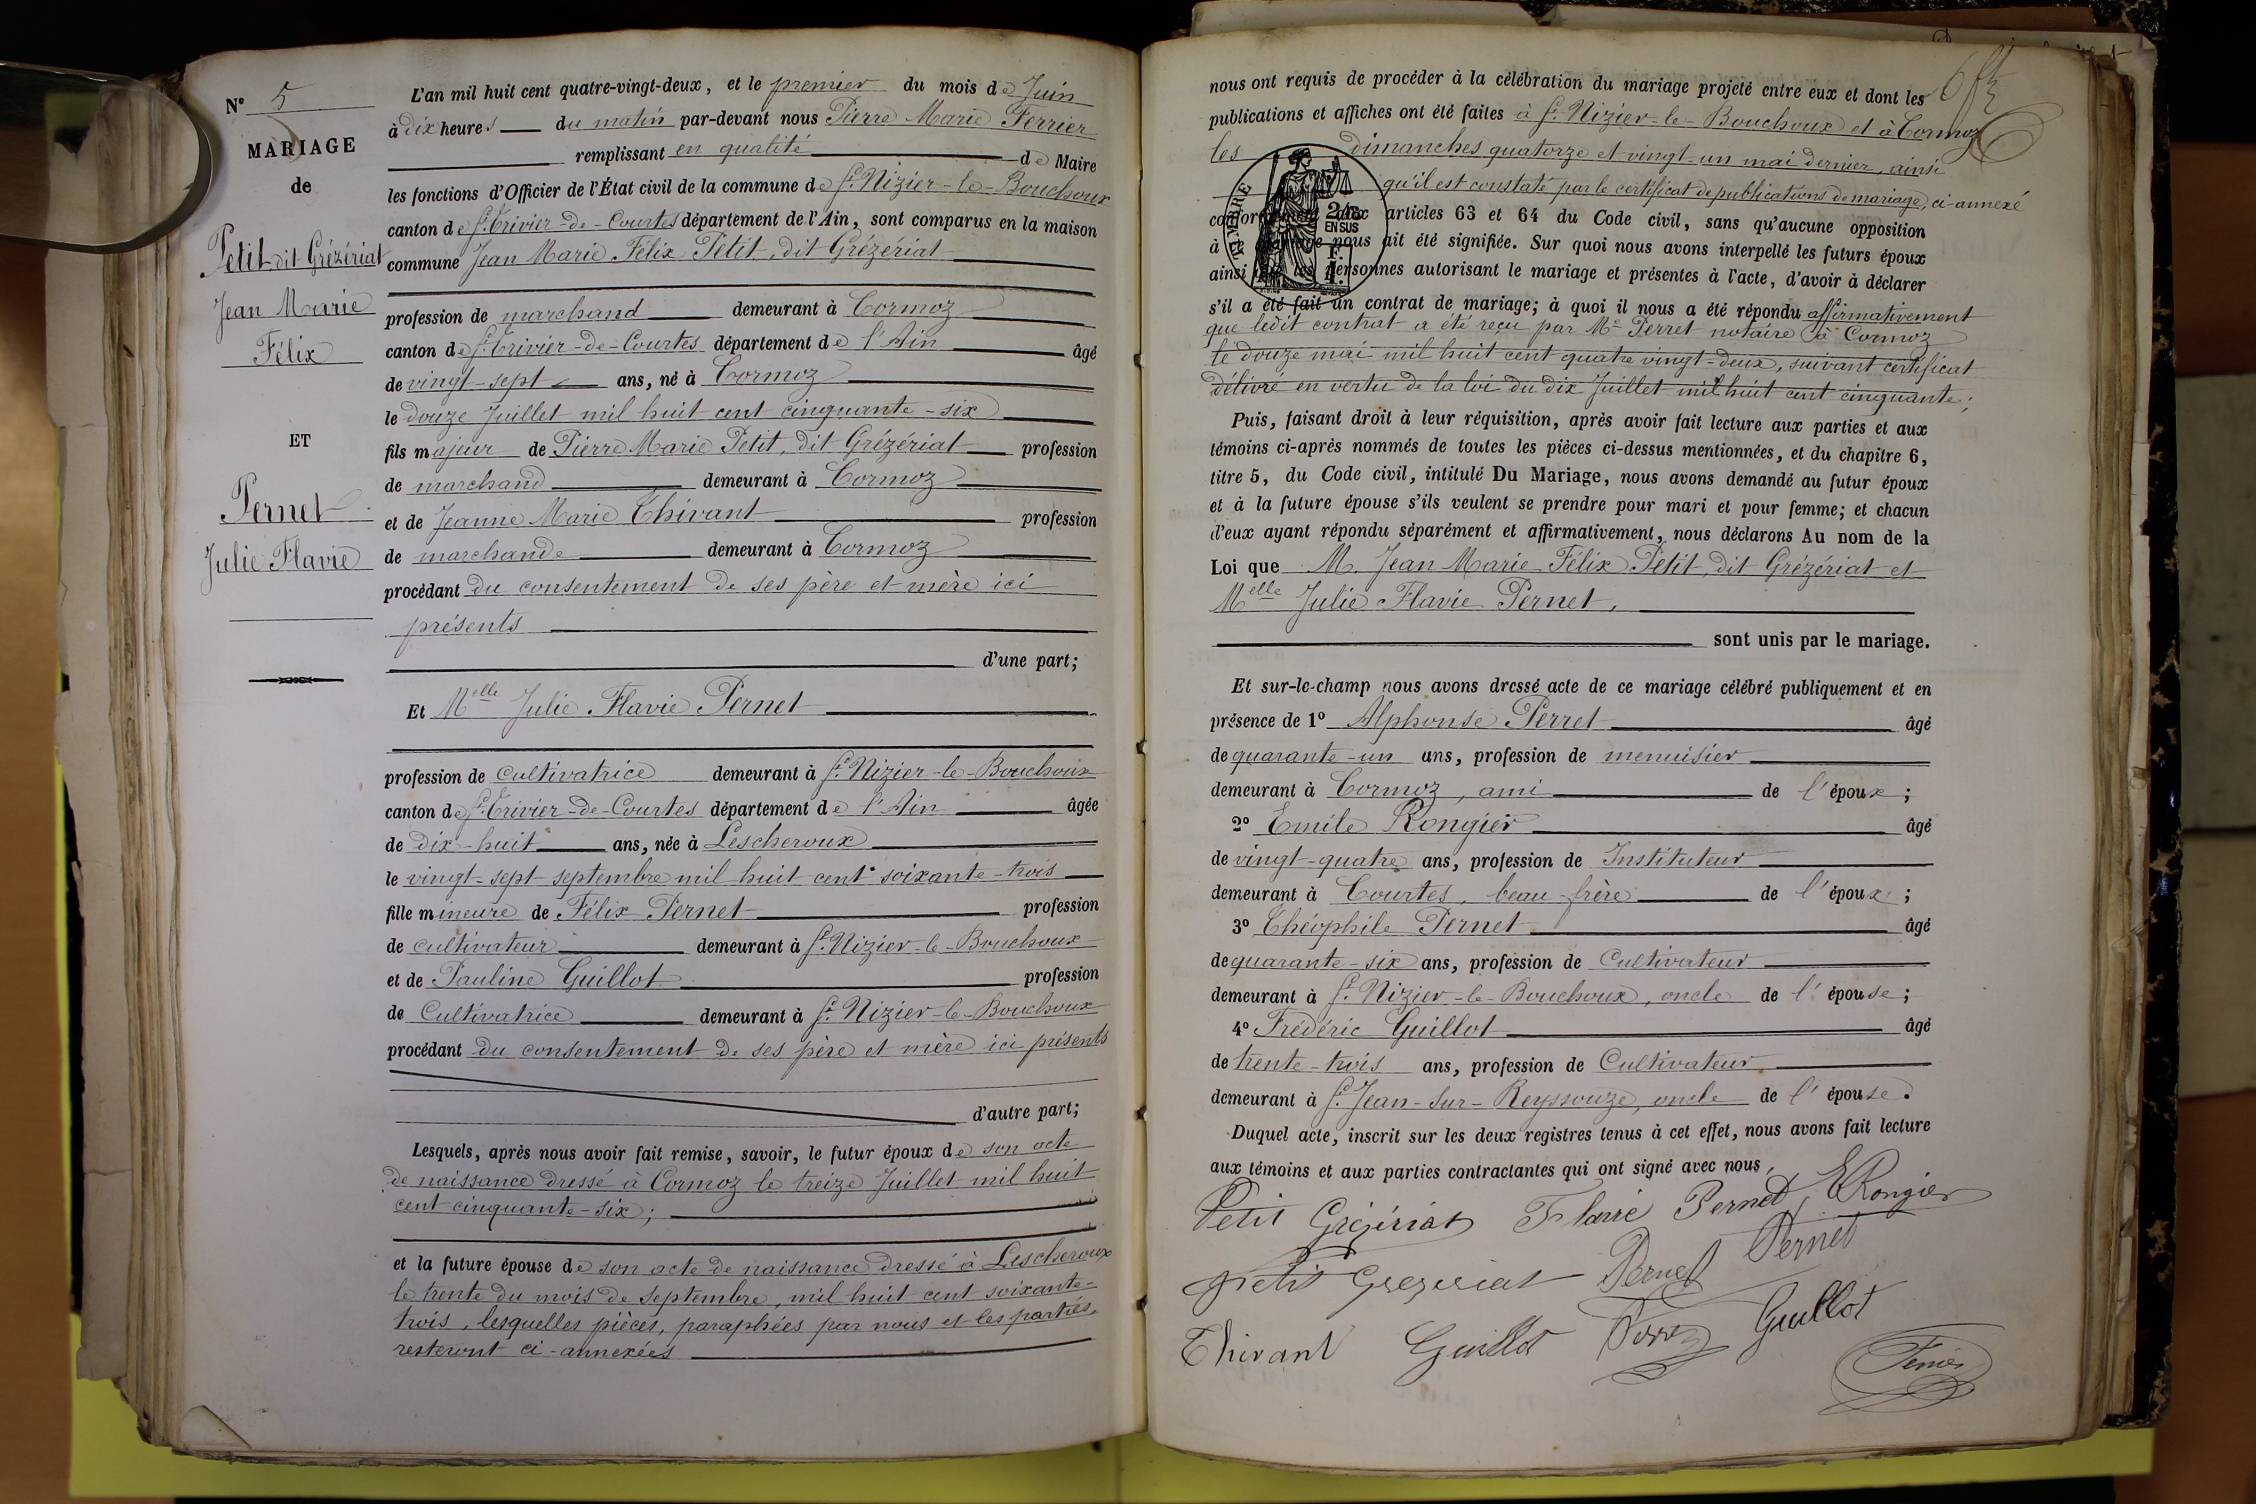 N° 5
MARIAGE
de
Petit dit Grézériat
Jean Marie
Félix
ET
Pernet
Julie Flavie
L'an mil huit cent quatre-vingt-deux, et le premier du mois de Juin
à dix heures du matin par-devant nous Pierre Marie Ferrier
remplissant en qualité de Maire
les fonctions d'Officier de l'État civil de la commune de St. Nizier-le-Bouchoux
canton de St. Trivier-de-Courtes département de l'Ain, sont comparus en la maison
commune Jean Marie Félix Petit, dit Grézériat
profession de marchand demeurant à Cormoz
canton de St. Trivier-de-Courtes département de l'Ain âgé
de vingt-sept ans, né à Cormoz
le douze Juillet mil huit cent cinquante-six
fils majeur de Pierre Marie Petit, dit Grézériat profession
de marchand demeurant à Cormoz
et de Jeanne Marie Thivant profession
de marchande demeurant à Cormoz
procédant du consentement de ses père et mère ici
présents
d'une part;
Et Melle Julie Flavie Pernet
profession de Cultivatrice demeurant à St. Nizier-le-Bouchoux
canton de St. Trivier-de-Courtes département de l'Ain âgée
de dix-huit ans, née à Lescheroux
le vingt-sept septembre mil huit cent soixante-trois
fille mineure de Félix Pernet profession
de cultivateur demeurant à St. Nizier-le-Bouchoux
et de Pauline Guillot profession
de Cultivatrice demeurant à St. Nizier-le-Bouchoux
procédant du consentement de ses père et mère ici présents
d'autre part;
Lesquels, après nous avoir fait remise, savoir, le futur époux de son acte
de naissance dressé à Cormoz le treize Juillet mil huit
cent cinquante-six;
et la future épouse de son acte de naissance dressé à Lescheroux
le trente du mois de septembre, mil huit cent soixante-
trois, lesquelles pièces, paraphées par nous et les parties,
resteront ci-annexées
nous ont requis de procéder à la célébration du mariage projeté entre eux et dont les
publications et affiches ont été faites à St. Nizier-le-Bouchoux et à Cormoz
les dimanches quatorze et vingt-un mai dernier, ainsi
qu'il est constaté par le certificat de publications de mariage, ci-annexé
conformément aux articles 63 et 64 du Code civil, sans qu'aucune opposition
à nous ait été signifiée. Sur quoi nous avons interpellé les futurs époux
ainsi que les personnes autorisant le mariage et présentes à l'acte, d'avoir à déclarer
s'il a été fait un contrat de mariage; à quoi il nous a été répondu affirmativement
que ledit contrat a été reçu par Me Perret notaire à Cormoz
le douze mai mil huit cent quatre vingt-deux, suivant certificat
délivré en vertu de la loi du dix Juillet mil huit cent cinquante;
TIMBRE
2/10
EN SUS
F.
1.
Puis, faisant droit à leur réquisition, après avoir fait lecture aux parties et aux
témoins ci-après nommés de toutes les pièces ci-dessus mentionnées, et du chapitre 6,
titre 5, du Code civil, intitulé Du Mariage, nous avons demandé au futur époux
et à la future épouse s'ils veulent se prendre pour mari et pour femme; et chacun
d'eux ayant répondu séparément et affirmativement, nous déclarons Au nom de la
Loi que M. Jean Marie Félix Petit, dit Grézériat et
Melle Julie Flavie Pernet,
sont unis par le mariage.
Et sur-le-champ nous avons dressé acte de ce mariage célébré publiquement et en
présence de 1° Alphonse Perret âgé
de quarante-un ans, profession de menuisier
demeurant à Cormoz, ami de l'époux;
2° Emile Rongier âgé
de vingt-quatre ans, profession de Instituteur
demeurant à Courtes, beau-frère de l'époux;
3° Théophile Pernet âgé
de quarante-six ans, profession de Cultivateur
demeurant à St. Nizier-le-Bouchoux, oncle de l'épouse;
4° Frédéric Guillot âgé
de trente-trois ans, profession de Cultivateur
demeurant à St. Jean-sur-Reyssouze, oncle de l'épouse.
Duquel acte, inscrit sur les deux registres tenus à cet effet, nous avons fait lecture
aux témoins et aux parties contractantes qui ont signé avec nous,
Petit Grézériat Flavie Pernet, E Rongier
Petit Grezeriat Pernet Pernet
Thivant Guillot Guillot